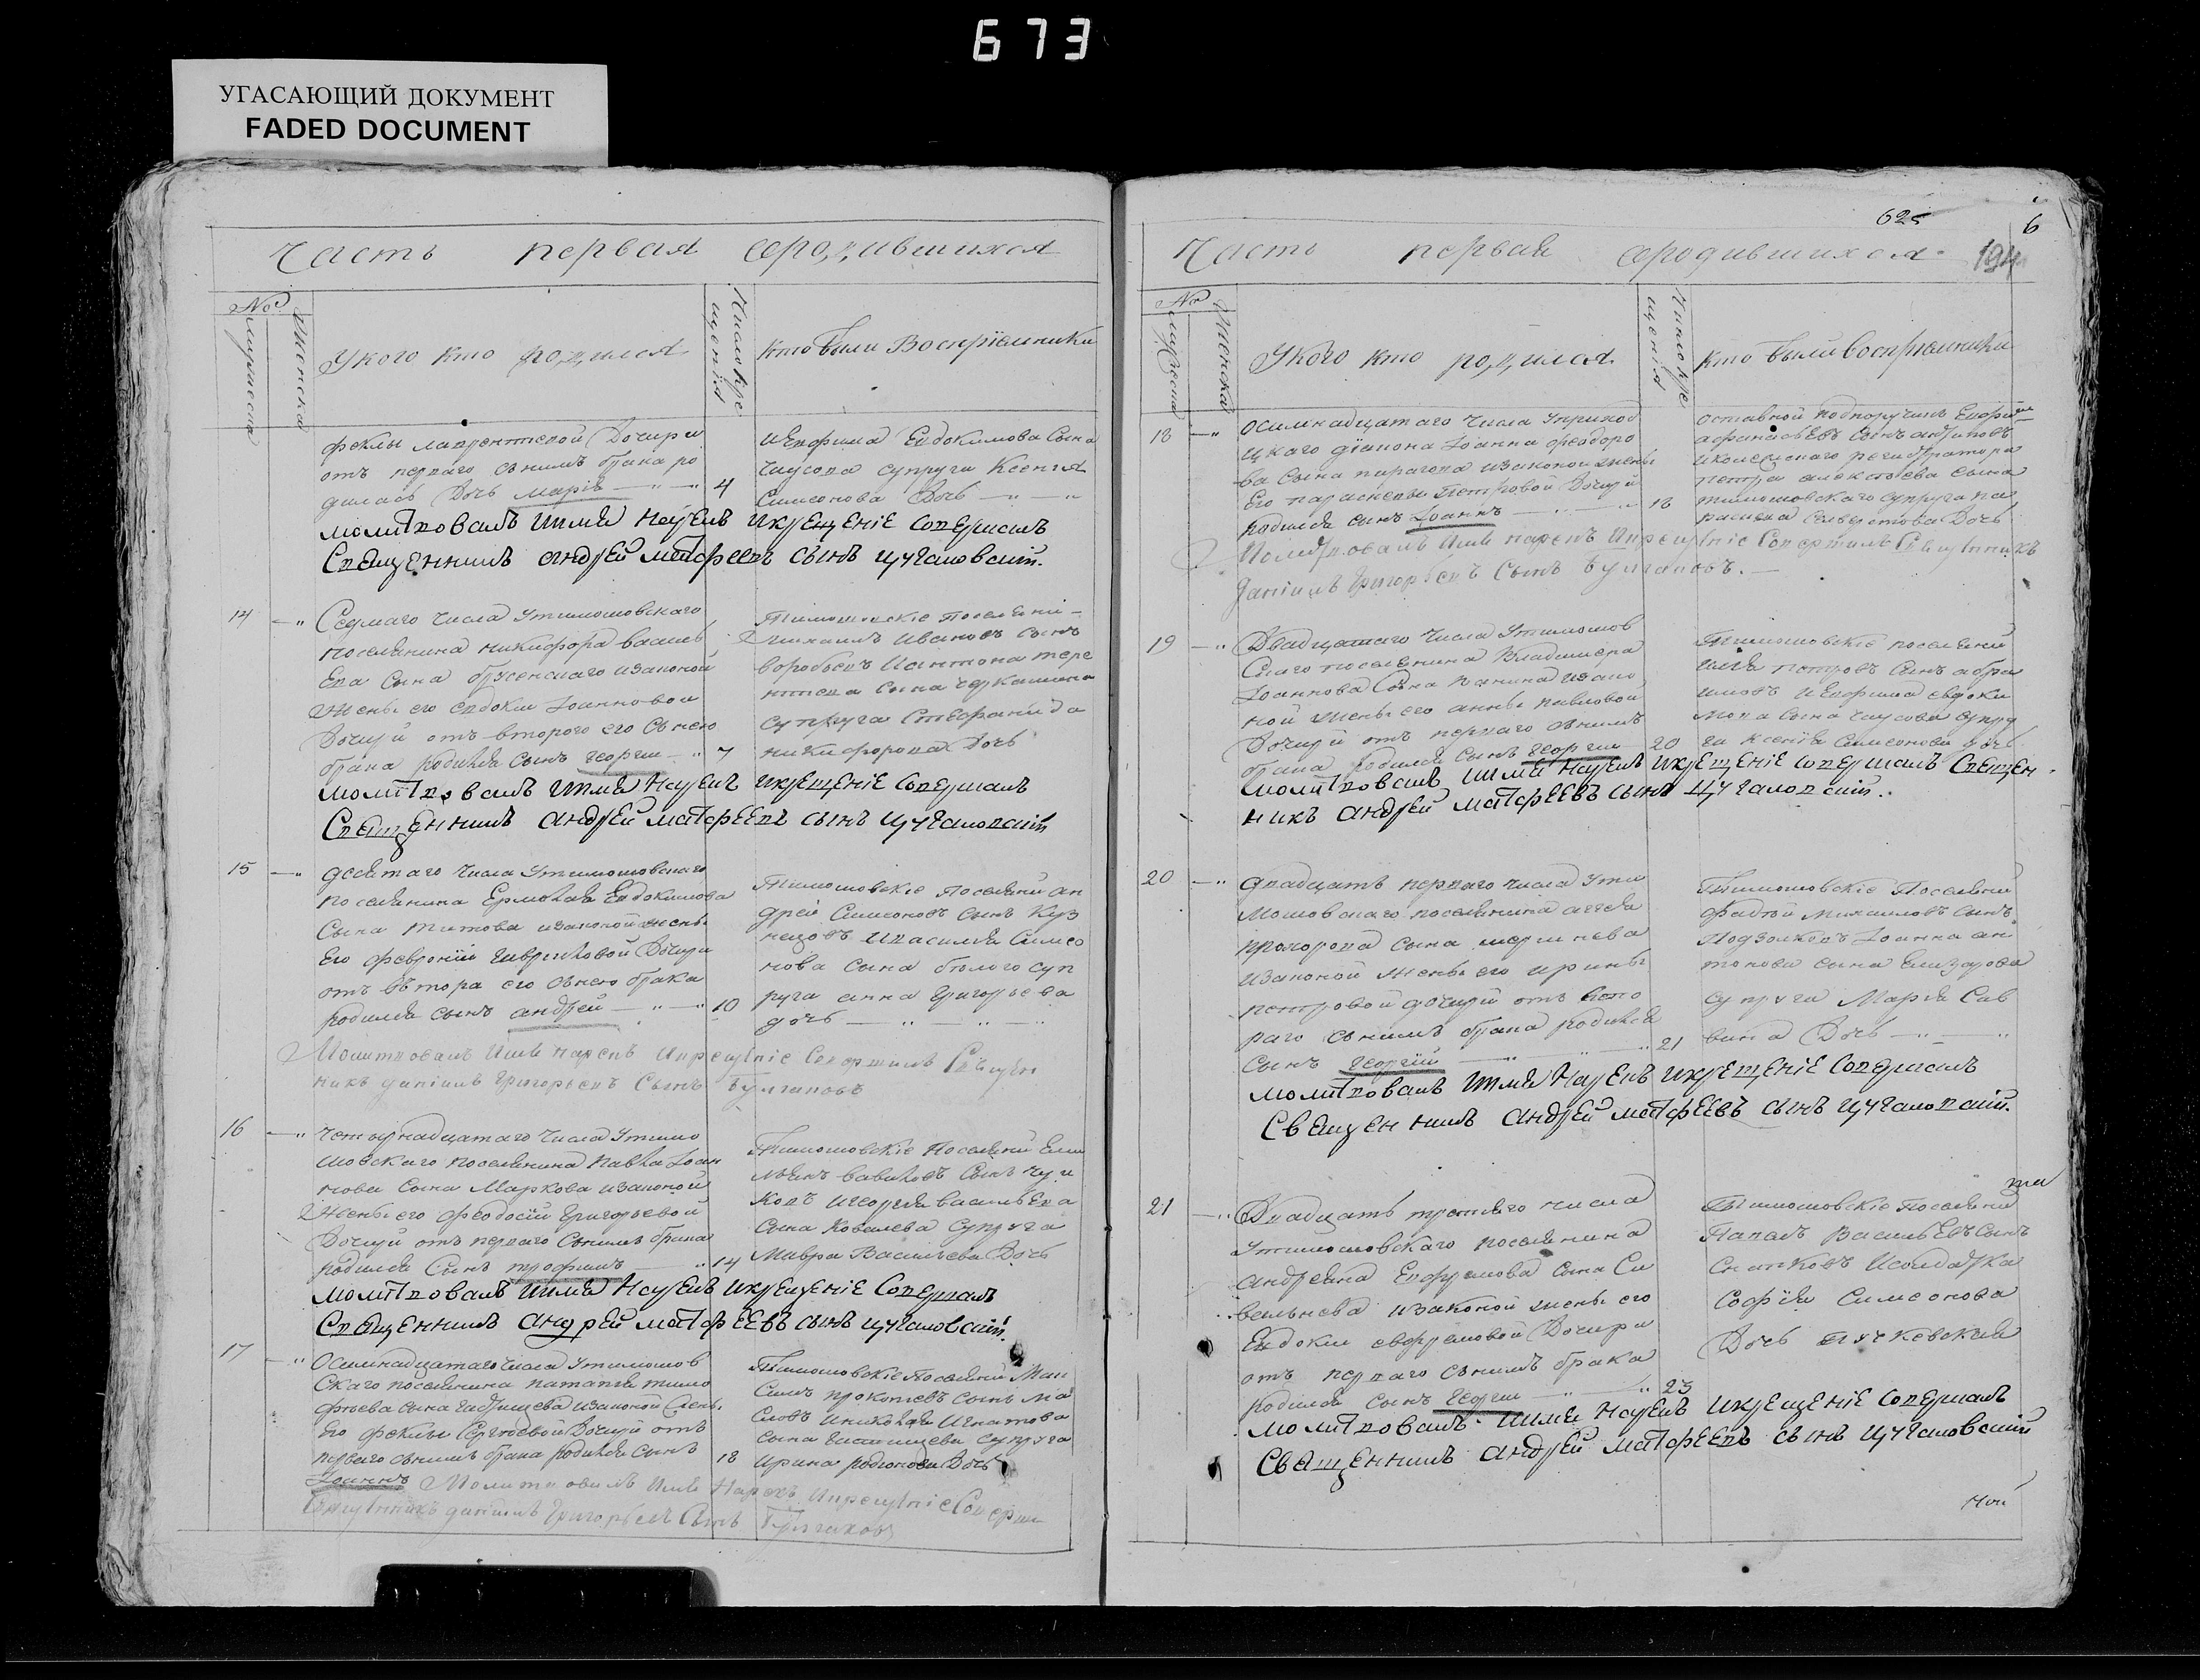 673
УГАСАЮЩИЙ ДОКУМЕНТ
FADED DOCUMENT
Часть первая ородившихся
№
мужеска
женска
Укого кто родился
Число кре
щенія
кто были Воспріемники
феклы лаврентевой Дочери
отъ перваго снимъ брака ро
дилась Дочь марія 4
иЕвфима Евдокимова Сына
Чаусова супруги Ксенія
Симеонова Дочь
молитвовалъ иимя Нарекъ икрещеніе совершалъ
Священникъ андрей матфеевъ сынъ цугаловскій.
14 Седмаго Числа Утимошовскаго
поселянина никифора василь
Ева Сына изаконой
Жены его евдокіи Іоанновой
Дочери отъ второго его Снею
брака родился Сынъ георгии 7
Тимошовскіе поселяни
михаилъ Ивановъ сынъ
воробьевъ Иантона тере
нтева сына черкашина
супруга Стефанида
никифорова Дочь
молитвовалъ иимя Нарекъ икрещеніе совершалъ
Священникъ андрей матфеевъ сынъ цугаловскій
15 десятаго Числа Утимошовскаго
поселянина Ермолая Евдокимова
Сына титова изаконой жены
Его февроніи гавриловой Дочери
отъ втора его снею брака
родился сынъ андрей 10
Тимошовскіе поселяни ан
дрей Симеоновъ сынъ Куз
нецовъ Ивасилія Симео
нова сына белого суп
руга анна григорьева
дочь
Молитвовалъ имя нарекъ икрещеніе Совершилъ Священ
никъ даніилъ григорьевъ Сынъ булгаковъ
16 Четырнадцатаго Числа Утимо
шовскаго поселянина павла Іоан
нова Сына Маркова изаконой
Жены его феодосіи григорьевой
Дочери отъ перваго Снимъ брака
родился Сынъ трофимъ 14
Тимошовскіе поселяни Еме
льянъ вавиловъ Сынъ
Игеоргія васильева
Сына Ковалева Супруга
Мавра Васильева Дочь
молитвовалъ иимя Нарекъ икрещеніе Совершалъ
Священникъ андрей матфеевъ сынъ цугаловскій.
17 Осмнадцатаго Числа Утимошов
Скаго поселянина патапія тимо
феева сына изаконой Жены
Его феклы Сергеевой Дочери отъ
перваго снимъ брака родился сынъ 18
Іоаннъ
Тимошовскіе поселяни Мак
симъ прокопіевъ сынъ ма
словъ иниколая Игнатова
сына супруга
ирина родіонова Дочь
Молитвовалъ имя Нарекъ икрещеніе Соверши
Священникъ даніилъ григорьевъ Сынъ Булгаковъ
625
6
194
Часть первая ородившихся
№
мужеска
женска
Укого кто родился
Число кре
щенія
кто были воспріемники
18 осмнадцатаго Числа Уприход
цкаго діякона Іоанна феодоро
ва сына изаконой жены
Его параскевы петровой Дочери
родился сынъ Іоаннъ 18
оставной подпоручикъ Евфи
афанасьевъ сынъ антиповъ
иколежскаго регистратора
петра алексеева сына
тимошовскаго супруга па
раскева Селверстова Дочь
Молитвовалъ имя нарекъ икрещеніе Совершилъ Священникъ
даніилъ григорьевъ Сынъ булгаковъ.
19 Двадцатаго Числа Утимошов
Скаго поселянина Владимера
Іоаннова Сына панина изако
ной жены его анны павловой
Дочери отъ перваго снимъ
брака родился сынъ георгии 20
Тимошовскіе поселяни
илія петровъ Сынъ абра
мовъ иЕвфима евдоки
мова сына чаусова супру
га ксенія симеонова дочь
молитвовалъ иимя нарекъ икрещеніе совершалъ Священ
никъ андрей матфеевъ сынъ цугаловскій.
20 двадцать перваго числа Ути
мошовскаго поселянина аггея
прохорова сына
изаконой жены его ирины
петровой дочери отъ вто
раго снимъ брака родился
сынъ георгій 21
Тимошовскіе Поселяни
фадей Михаиловъ Сынъ
Подзолковъ Іоанна ан
тонова сына елизарова
супруга Марія Сав
вина Дочь
молитвовалъ иимя Нарекъ икрещеніе совершалъ
Священникъ андрей матфеевъ сынъ цугаловскій.
21 Двадцать третьяго числа
Утимошовскаго поселянина
андреяна Евфремова Сына Са
вельнева изаконой жены его
Евдокіи ефремовой Дочери
отъ перваго снимъ брака
родился сынъ георгии 23
Тимошовскіе Поселяни
Павелъ Васильевъ Сынъ
Исолдатка
Софія Симеонова
Дочь
молитвовалъ иимя нарекъ икрещеніе совершалъ
Священникъ андрей матфеевъ сынъ цугаловскій